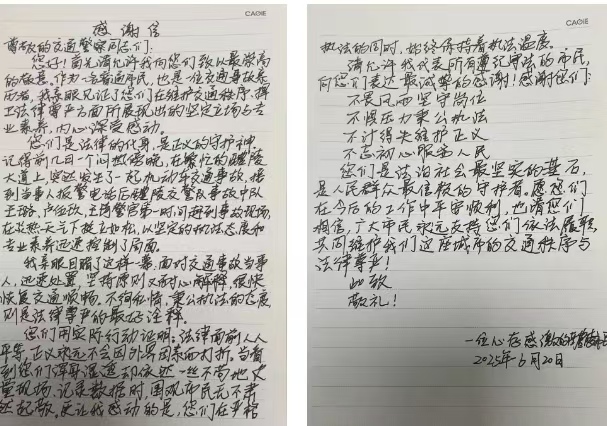 CAGIE
感谢信
尊敬的交通警察同志们:
您好!首先请允许我向你们致以最崇高
的敬意。作为一名普通市民,也是一位交通事故亲
历者,我亲眼见证了你们在维护交通秩序、捍
卫法律尊严方面所展现出的坚定立场与专
业素养,内心深受感动。
您们是法律的化身,是正义的守护神
记得前几日一个闷热傍晚,在繁忙的醴陵
大道上,突然发生了一起机动车交通事故,接
到当事人报警电话后醴陵交警队事故中队
王 警官第一时间赶到事故现场,
在炎热天气下挺立执法,以坚定的执法态度和
专业素养迅速控制了局面。
我亲眼目睹了这样一幕,面对交通事故当事
人,迅速处置,坚持原则又耐心解释,很快
恢复交通顺畅,不徇私情,秉公执法的态度,
则是法律尊严的最好诠释。
您们用实际行动证明:法律面前人人
平等,正义永远不会因外界因素而打折。当看
到您们浑身湿透却依然一丝不苟地丈
量现场、记录数据时,围观市民无不肃
然起敬。更让我感动的是,您们在严格
CAGIE
执法的同时,始终保持着执法温度。
请允许我代表所有遵纪守法的市民,
向您们表达最诚挚的感谢!感谢您们:
不畏风雨坚守岗位
不惧压力秉公执法
不计得失维护正义
不忘初心服务人民
您们是法治社会最坚实的基石,
是人民群众最信赖的守护者。愿您们
在今后的工作中平安顺利,也请您们
相信,广大市民永远支持您们依法履职,
共同维护我们这座城市的交通秩序与
法律尊严!
此致
敬礼!
一位心存感激的
2025年6月20日